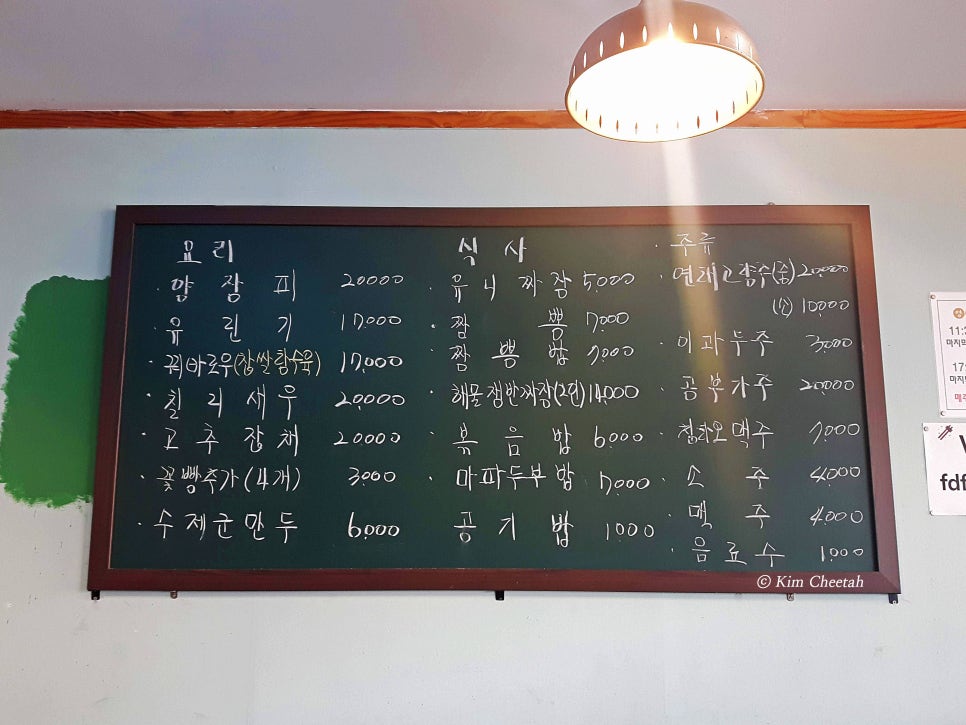 요리
양장피 20000
유린기 17,000
꿔바로우(찹쌀탕수육) 17,000
칠리새우 20,000
고추잡채 20000
꽃빵추가(4개) 3000
수제군만두 6,000
식사
유니짜장 5,000
짬뽕 7,000
짬뽕밥 7,000
해물쟁반짜장(2인) 14,000
볶음밥 6,000
마파두부밥 7,000
공기밥 1,000
주류
연태고량주(중) 20,000
(소) 10,000
이과두주 3,000
공부가주 20,000
칭타오맥주 7,000
소주 4,000
맥주 4,000
음료수 1,000
11:
마지막
17:
마지막
fdf
© Kim Cheetah